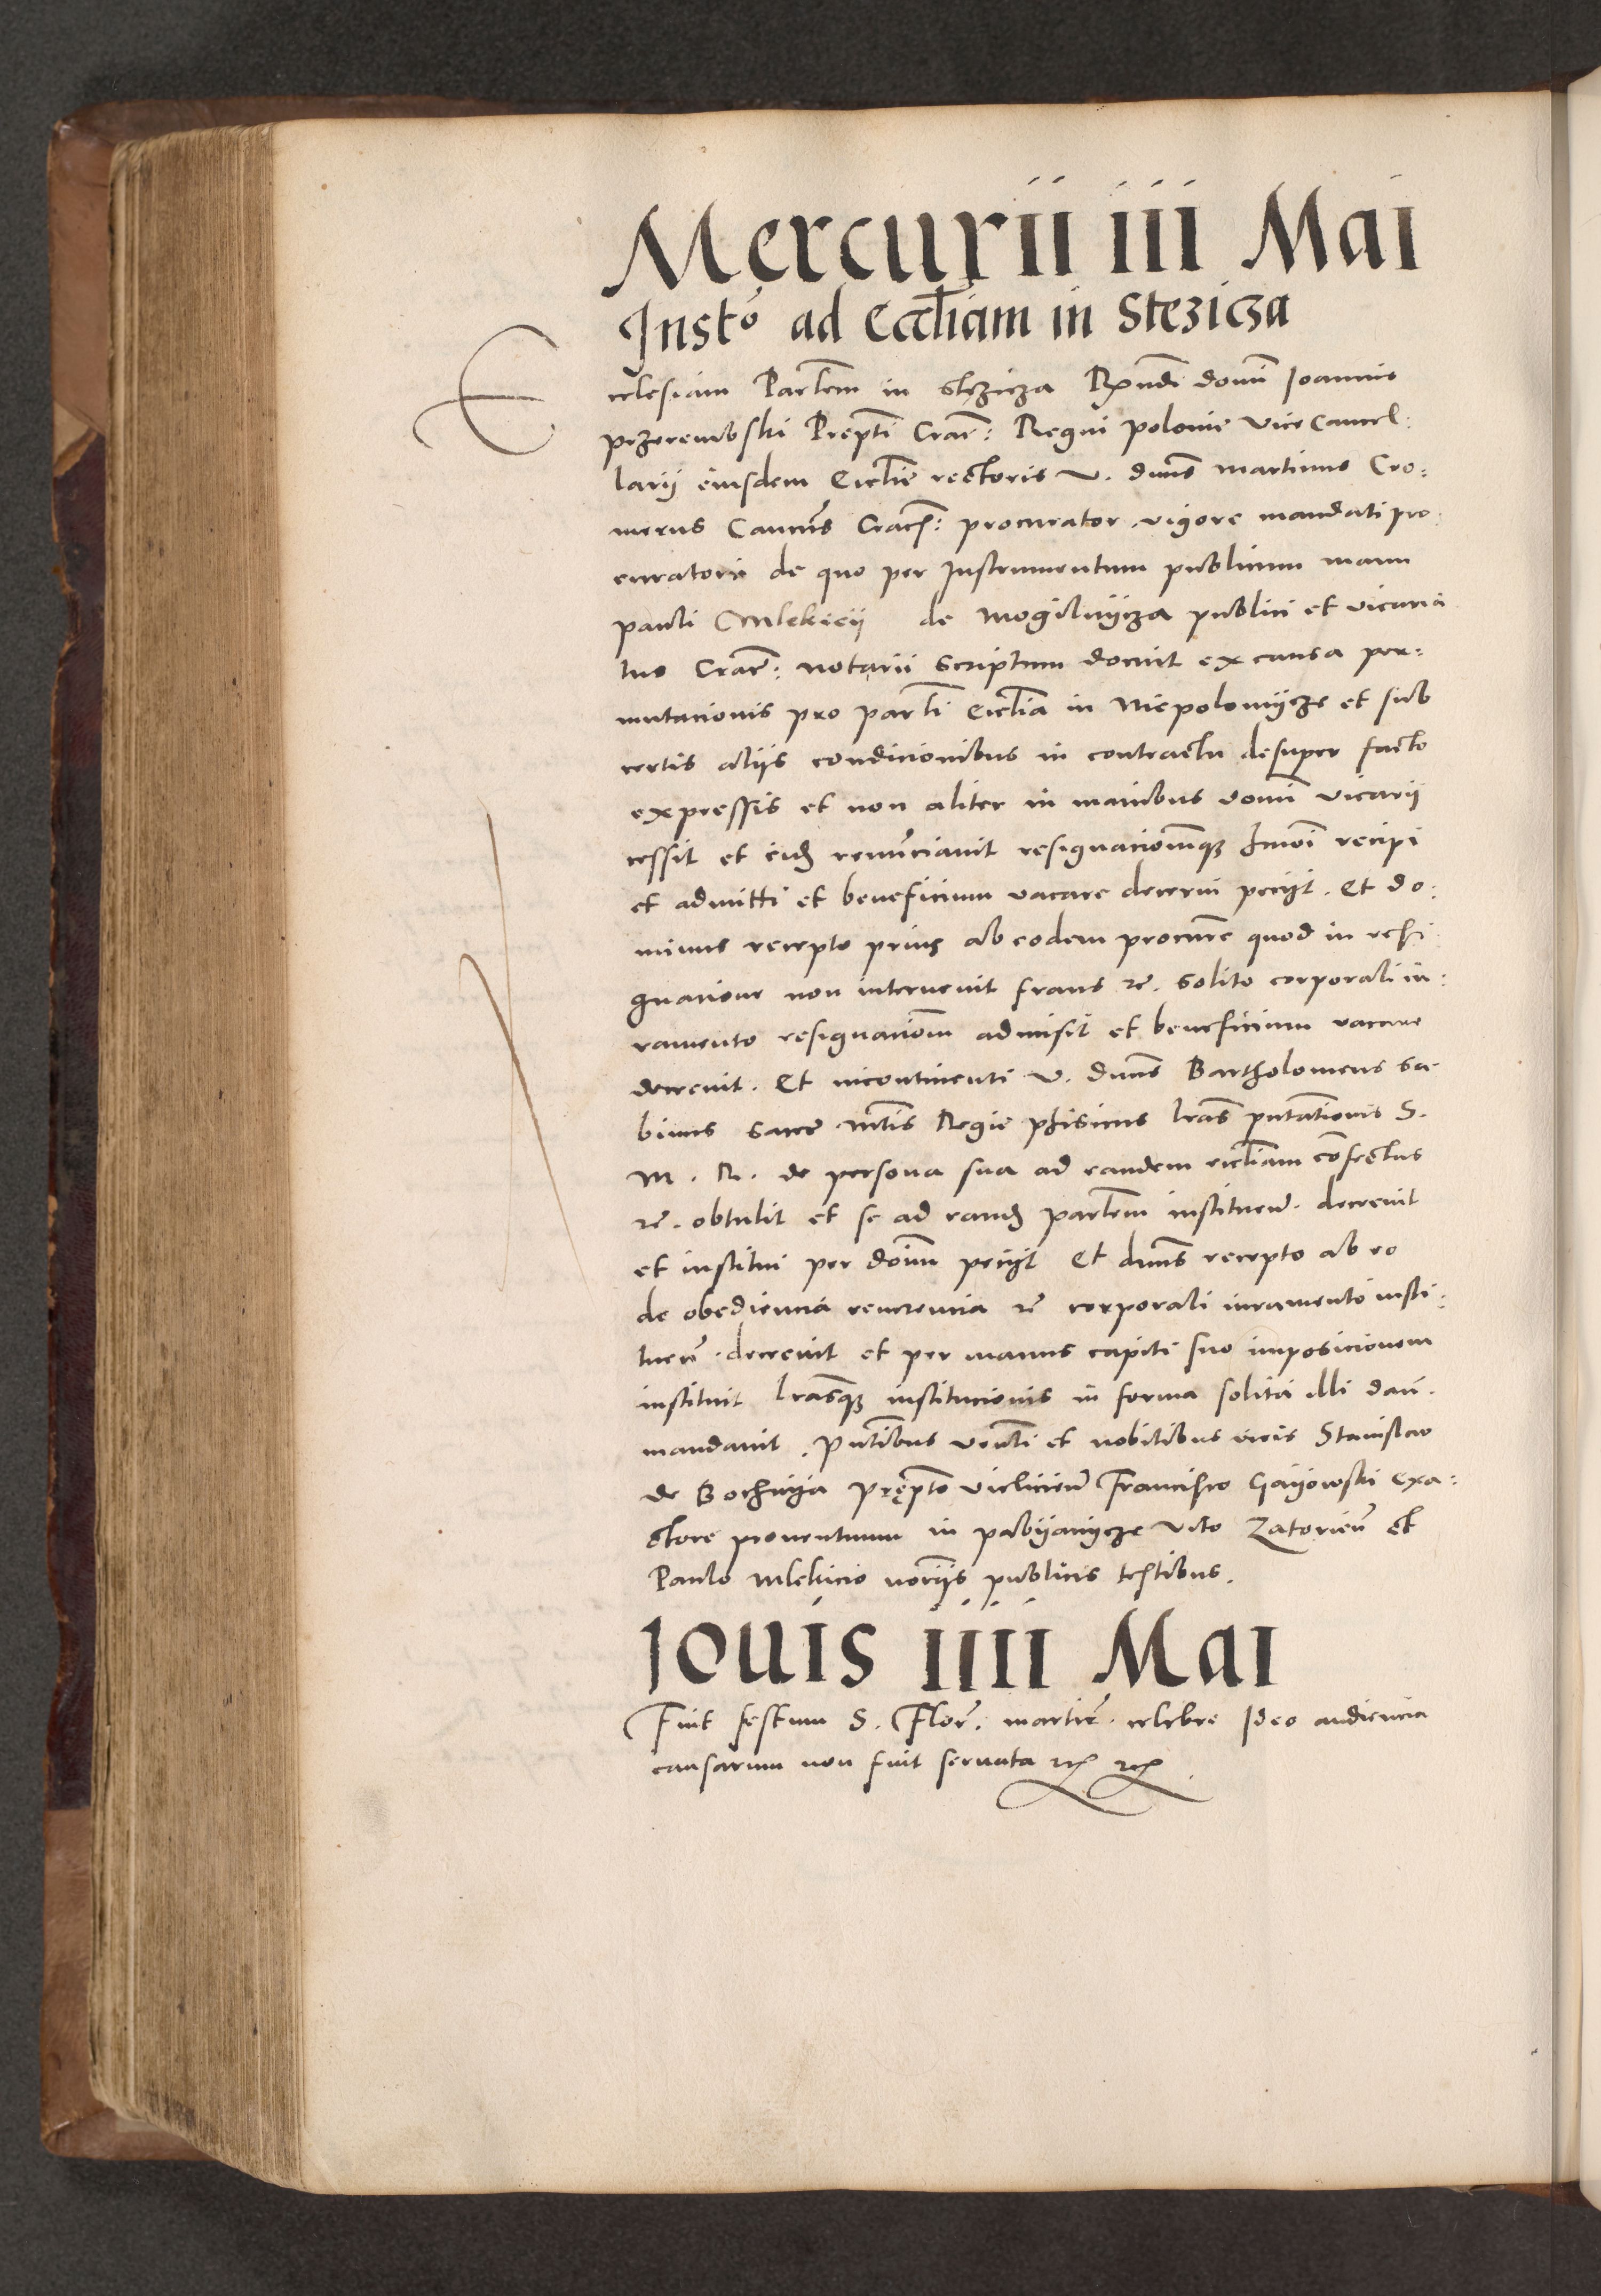 Mercurii iii Mai
Insto ad Eccliam in Stezicza
Ecclesiam Parlem in Stezicza Rxndi domi Ioannis
przerembski Prepti Crac: Regni polonie Vice Cancel:
larij eiusdem Ecclie rectoris V. dnns martinus Cro:
merus Canncus Crac: procurator vigore mandati pro:
curatorii de quo per Instrumentum publicum manu
pauli Mlekicij de mogilnijcza publici et vicaria
tus Crac: notarii scriptum docuit ex causa per:
mutacionis pro parli Ecclia in Niepolomijcze et sub
certis alijs condicionibus in contractu desuper facto
expressis et non aliter in manibus domi vicarij
cessit et eid renunciavit resignacionemque hmoi recipi
et admitti et beneficium vacare decerni pecijt. Et do:
minus recepto prius ab eodem procure quod in resi
gnacione non intervenit fraus re. solito corporali iu:
ramento resignacionem admisit et beneficium vacare
decrevit. Et incontinenti V. dnns Bartholomeus Sa:
binus sacre mtis Regie phisicus lras pntationis S.
M. R. de persona sua ad eandem eccliam confectas
re. obtulit et se ad eand parlem instituen. decrevit
et institui per domi pecijt Et dnns recepto ab eo
de obediencia reverencia re corporali iuramento insti:
tuen. decrevit et per manus capiti suo imposicionem
instituit lrasque institucionis in forma solita illi dari
mandavit. Pntibus venli et nobilibus viris Stanislao
de Bochnija Prepto vielicien Francisco Gaijowski exa:
ctore proventuum in pabijanijcze Vito Zatorien et
Paulo Mlekicio norijs publicis testibus.
Iouis iiii Mai
Fuit festum S. Flor. martir. celebre Ideo audiencia
causarum non fuit servata rx rx